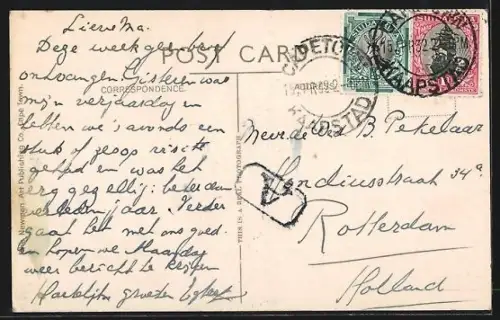 POST CARD
CORRESPONDENCE.
ADDRESS
Lieve Ma.
Deze week geen brief
ontvangen. Gisteren was
mijn verjaardag en
hebben we 's avonds een
stuk of zoop
gehad en was het
erg gezellig: beter dan
verleden jaar. Verder
gaat het met ons goed.
en hopen we Maandag
weer bericht te krijgen
Hartelijke groeten
Newman Art Publishing Co., Cape Town.
THIS IS A REAL PHOTOGRAPH
CAPETOWN
KAAPSTAD
KAAPSTAD
A
B. Pekelaar
Hondiusstraat 34a
Rotterdam
Holland